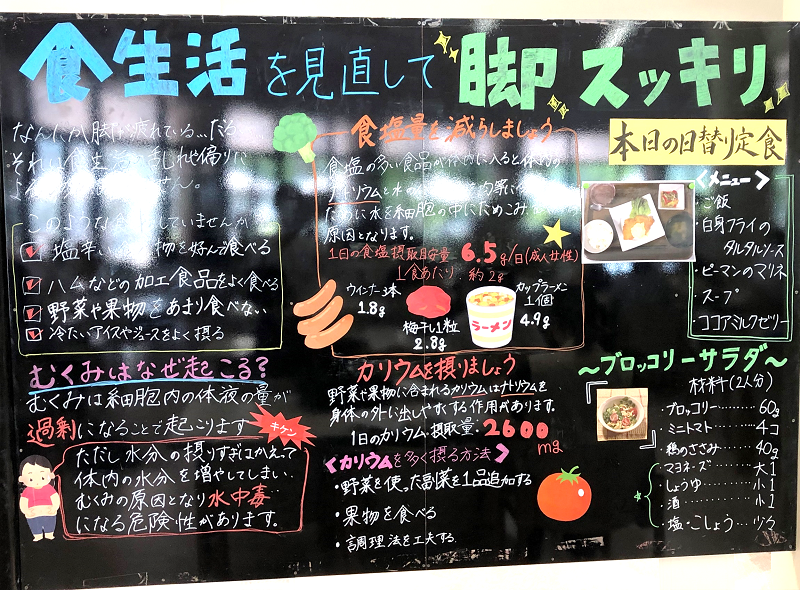 食生活を見直して脚スッキリ
なんだか脚が疲れている…だる
それは食生活の乱れや偏りに
よる
このような していませんか
塩辛い 物を好んで食べる
ハムなどの加工食品をよく食べる
野菜や果物をあまり食べない
冷たいアイスやジュースをよく摂る
むくみはなぜ起こる?
むくみは細胞内の体液の量が
過剰になることで起こります
キケン
ただし水分の摂りすぎはかえって
体内の水分を増やしてしまい、
むくみの原因となり水中毒
になる危険性があります。
食塩量を減らしましょう
食塩の多い食品が体内に入ると体は
ナトリウムと水の を均等に
ために水を細胞の中にためこみ、
原因となります。
1日の食塩摂取目安量 6.5g/日(成人女性)
1食あたり 約2g
ウインナー3本
1.8g
梅干し1粒
2.8g
カップラーメン
1個
4.9g
ラーメン
カリウムを摂りましょう
野菜や果物に含まれるカリウムはナトリウムを、
身体の外に出しやすくする作用があります。
1日のカリウム摂取量・2600mg
<カリウムを多く摂る方法>
・野菜を使った副菜を1品追加する
・果物を食べる
・調理法を工夫する
本日の日替り定食
<メニュー>
・ご飯
・白身フライの
タルタルソース
・ピーマンのマリネ
・スープ
・ココアミルクゼリー
～ブロッコリーサラダ～
材料(2人分)
・ブロッコリー………60g
・ミニトマト………4コ
・鶏のささみ………40g
・マヨネーズ………大1
・しょうゆ………小1
・酒………小1
・塩・こしょう…少々